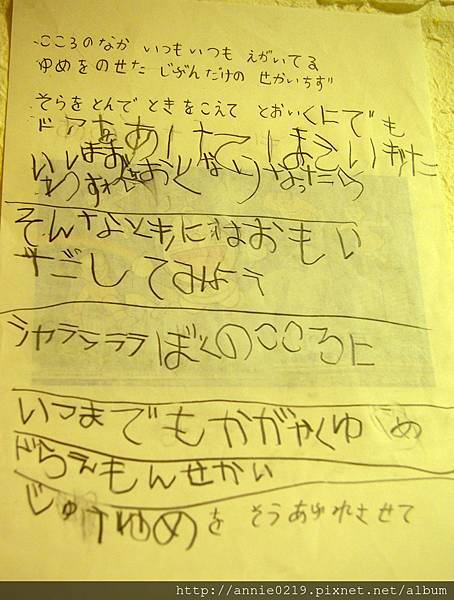 こころのなか いつもいつも えがいてる
ゆめをのせた じぶんだけの せかいちず
そらをとんで ときをこえて とおいくにでも
ドアをあけて ほら いきたいよ
おとなになったら
そんなときにはおもい
だしてみよう
シャラララララ ぼくのこころに
いつまでもかがやくゆめ
ドらえもん せかい
じゅうけ ゆめ を そうあふれさせて
http://annie0219.pixnet.net/album